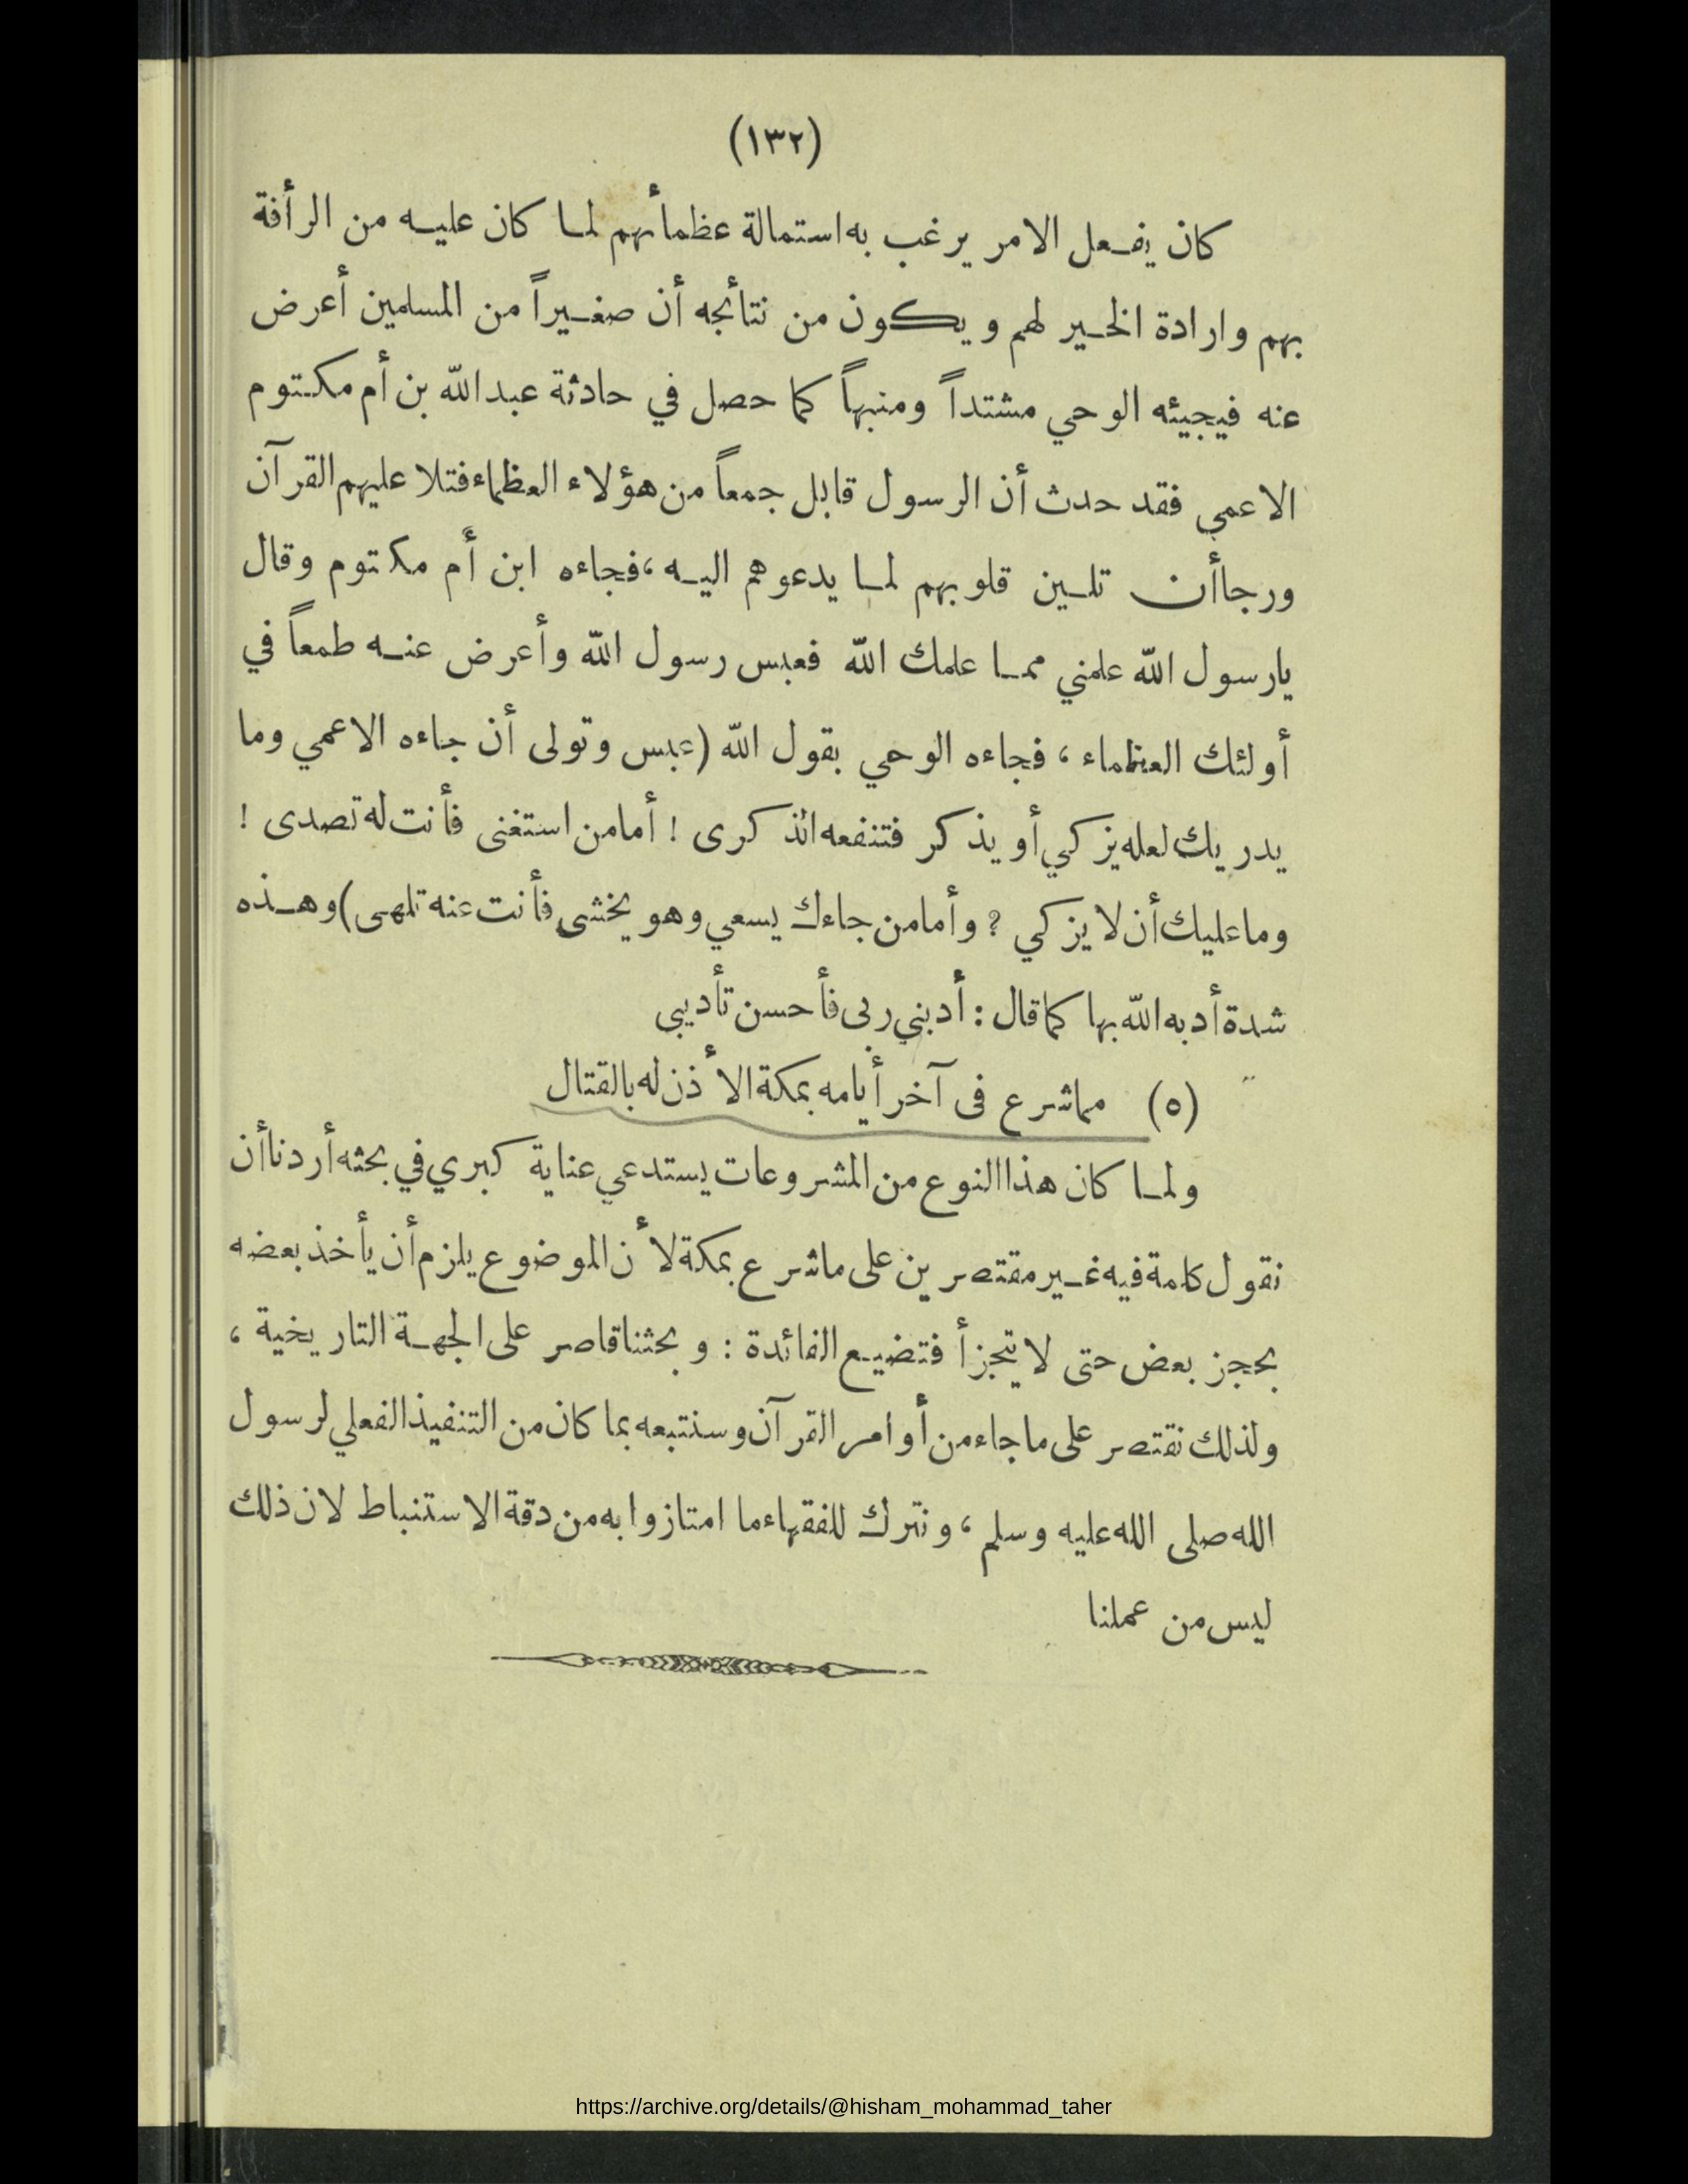 (١٣٢)
كان يفعل الامر يرغب به استمالة عظمائهم لما كان عليه من الرأفة
بهم وارادة الخير لهم ويكون من نتائجه أن صغيراً من المسلمين أعرض
عنه فيجيئه الوحي مشتداً ومنبهاً كما حصل في حادثة عبد الله بن أم مكتوم
الاعمي فقد حدث أن الرسول قابل جمعاً من هؤلاء العظماء فتلا عليهم القرآن
ورجا أن تلين قلوبهم لما يدعوهم اليه ، فجاءه ابن أم مكتوم وقال
يارسول الله علمني مما علمك الله فعبس رسول الله وأعرض عنه طمعاً في
أولئك العظماء ، فجاءه الوحي بقول الله (عبس وتولى أن جاءه الاعمي وما
يدريك لعله يزكي أو يذكر فتنفعه الذكرى ! أما من استغنى فأنت له تصدى !
وما عليك أن لا يزكي ? وأما من جاءك يسعي وهو يخشى فأنت عنه تلهى) وهذه
شدة أدبه الله بها كما قال : أدبني ربى فأحسن تأديبى
(٥) مما شرع فى آخر أيامه بمكة الأذن له بالقتال
ولما كان هذا النوع من المشروعات يستدعي عناية كبري في بحثه أردنا أن
نقول كلمة فيه غير مقتصرين على ما شرع بمكة لأن الموضوع يلزم أن يأخذ بعضه
بحجز بعض حتى لا يتجزأ فتضيع الفائدة : وبحثنا قاصر على الجهة التاريخية ،
ولذلك نقتصر على ما جاء من أوامر القرآن وسنتبعه بما كان من التنفيذ الفعلي لرسول
الله صلى الله عليه وسلم ، ونترك للفقهاء ما امتازوا به من دقة الاستنباط لان ذلك
ليس من عملنا
https://archive.org/details/@hisham_mohammad_taher